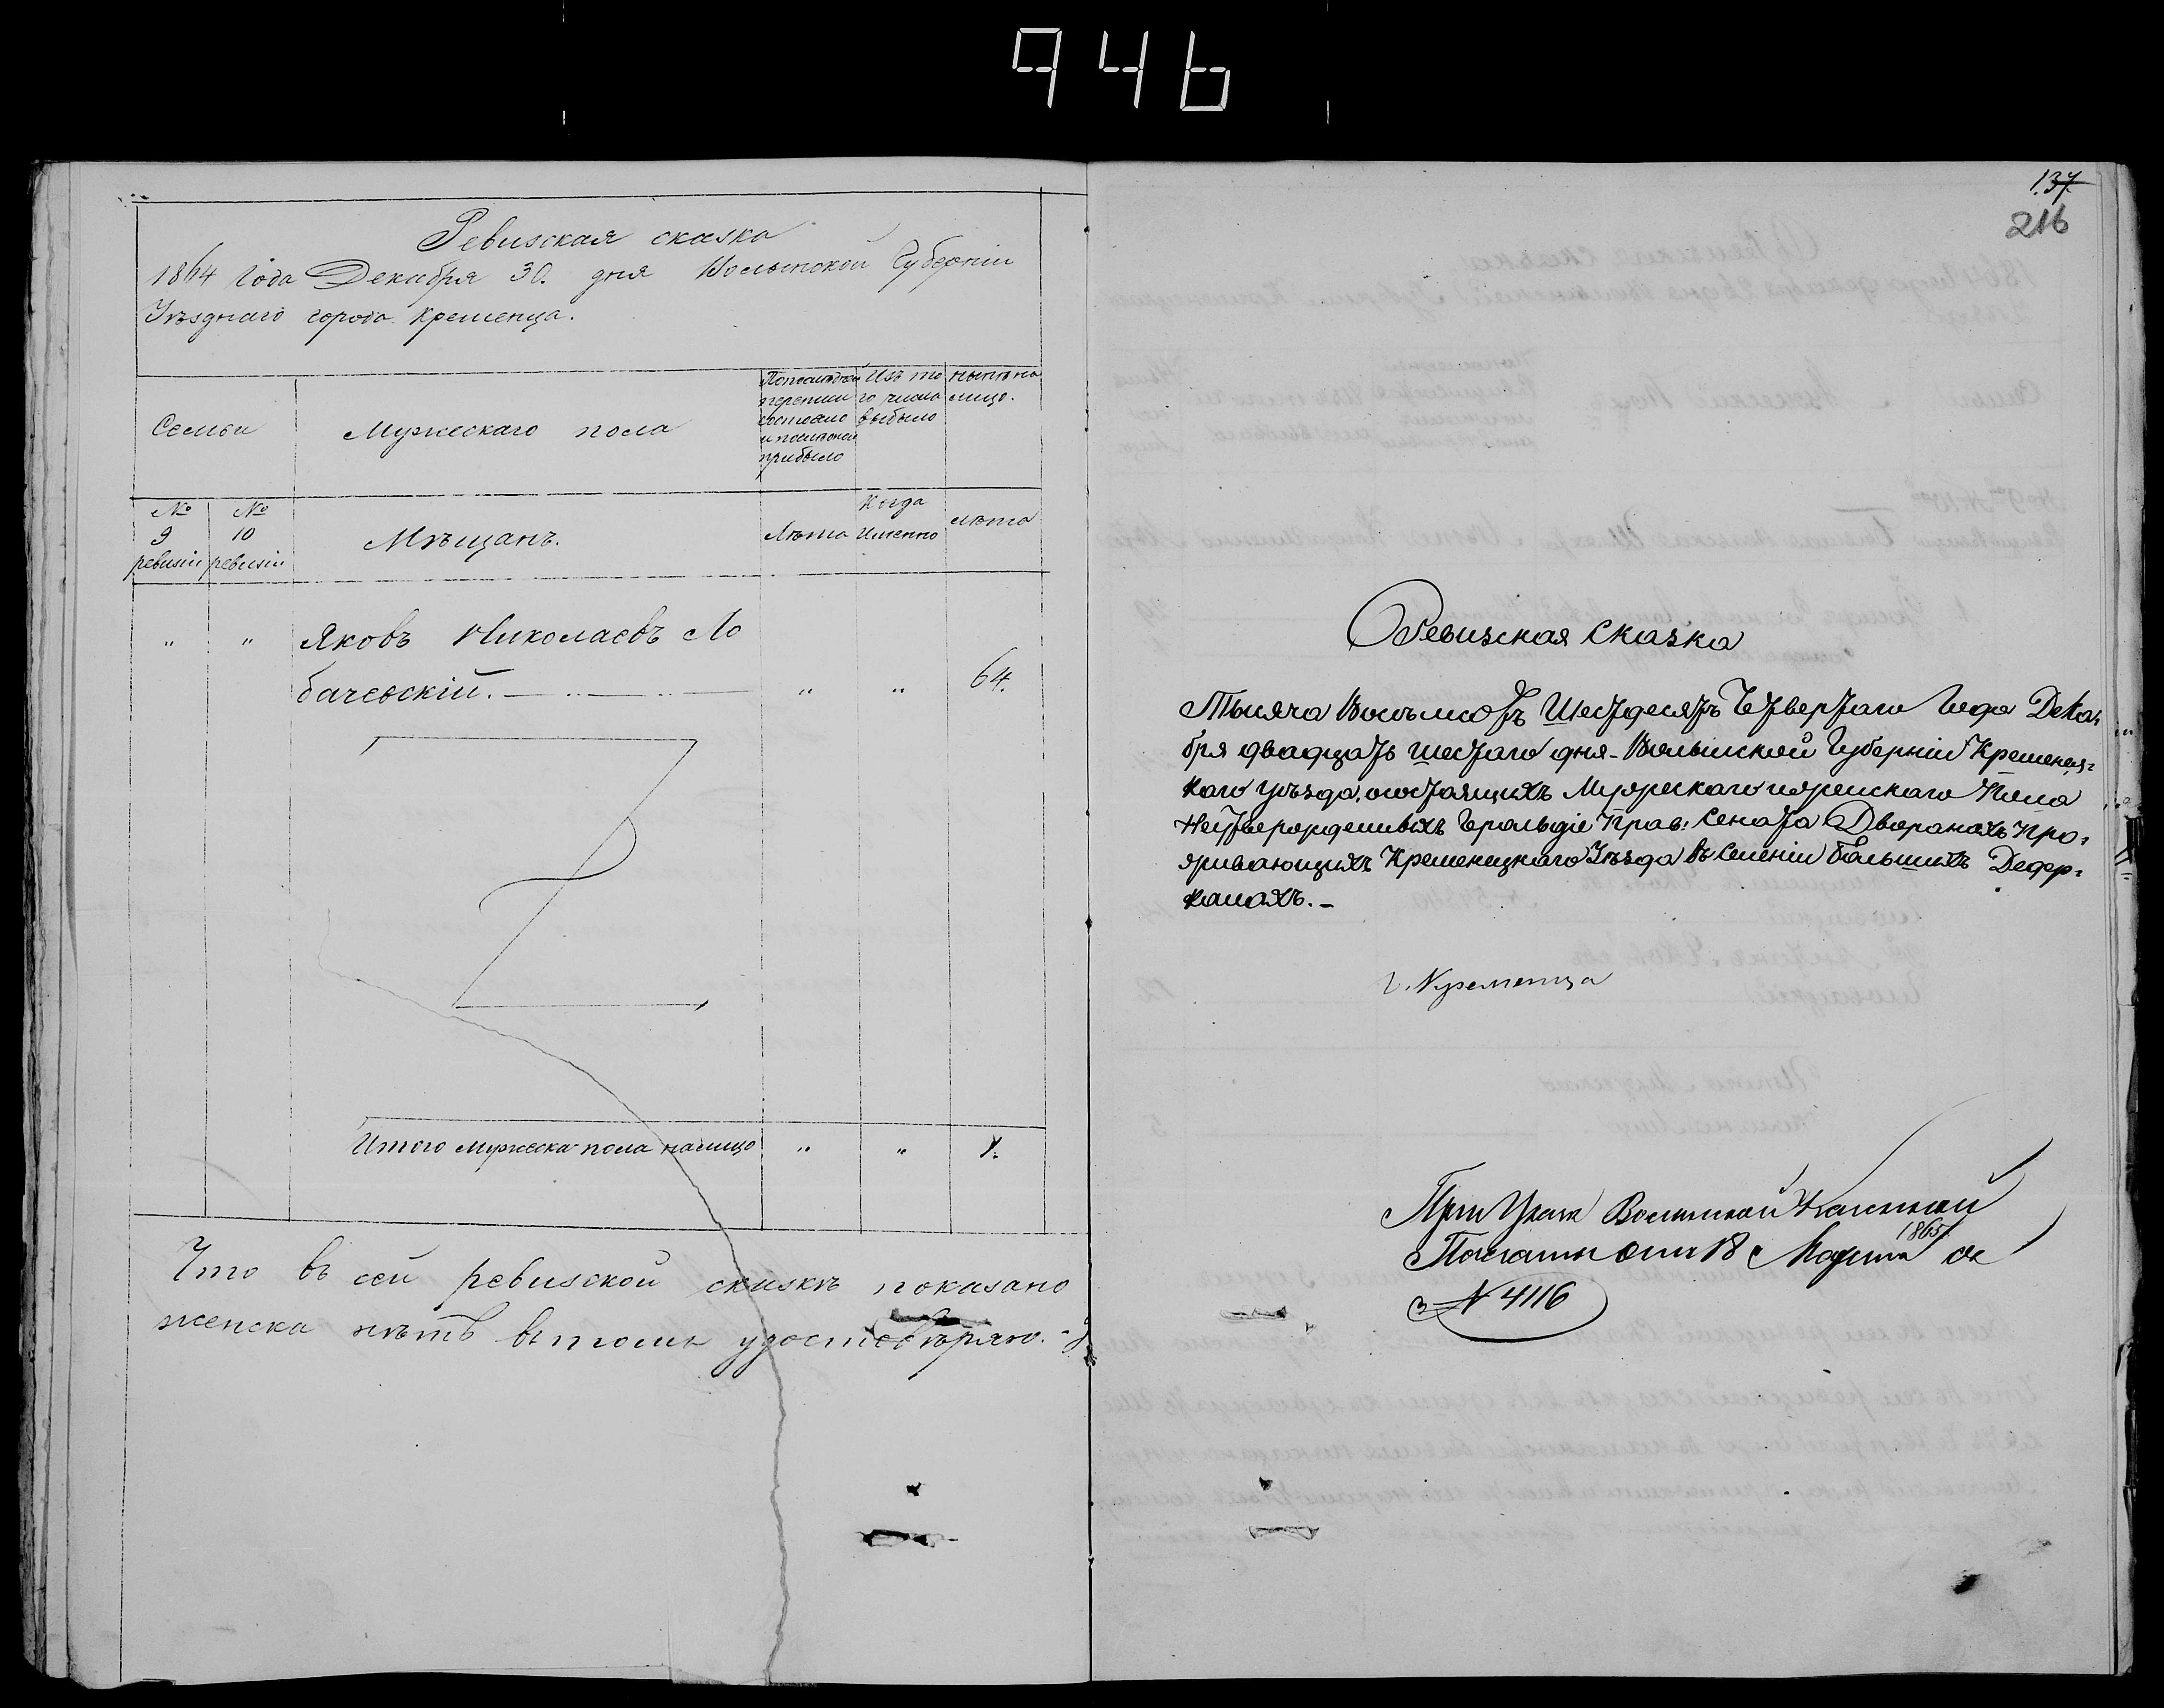 946
Ревизская сказка
1864 Года Декабря 30. дня Волынской Губерніи
Уѣзднаго города Кременца.
Семьи
Мужескаго пола
По последней переписи состояло и после оной прибыло
Изъ того числа выбыло
Ныне на лицо.
№ 9 ревизіи
№ 10 ревизіи
Мѣщанъ.
Лѣта
Когда Именно
лѣта
" " Яковъ Николаевъ Ло
бачевскій. " " 64.
Итого мужеска пола налицо " " 1.
Что въ сей ревизской сказкѣ показано
женска нѣтъ въ томъ удостовѣряю.
137
216
Ревизская Сказка
Тысяча Восъмсотъ Шестдесятъ Четвертаго Года Дека=
бря двадцать шестаго дня Волынской Губерніи Кременец=
каго уѣзда, о состоящихъ Мужескаго и женскаго Пола
Неутвержденныхъ Герольдіе Прав: Сената Дворянахъ про=
живающихъ Кременицкаго Уѣзда въ Селеніи Большихъ Дедер=
калахъ. –
г. Кременца
При Указе Волынской Казенной
Палаты отъ 18 Марта 1865 г.
за № 4116